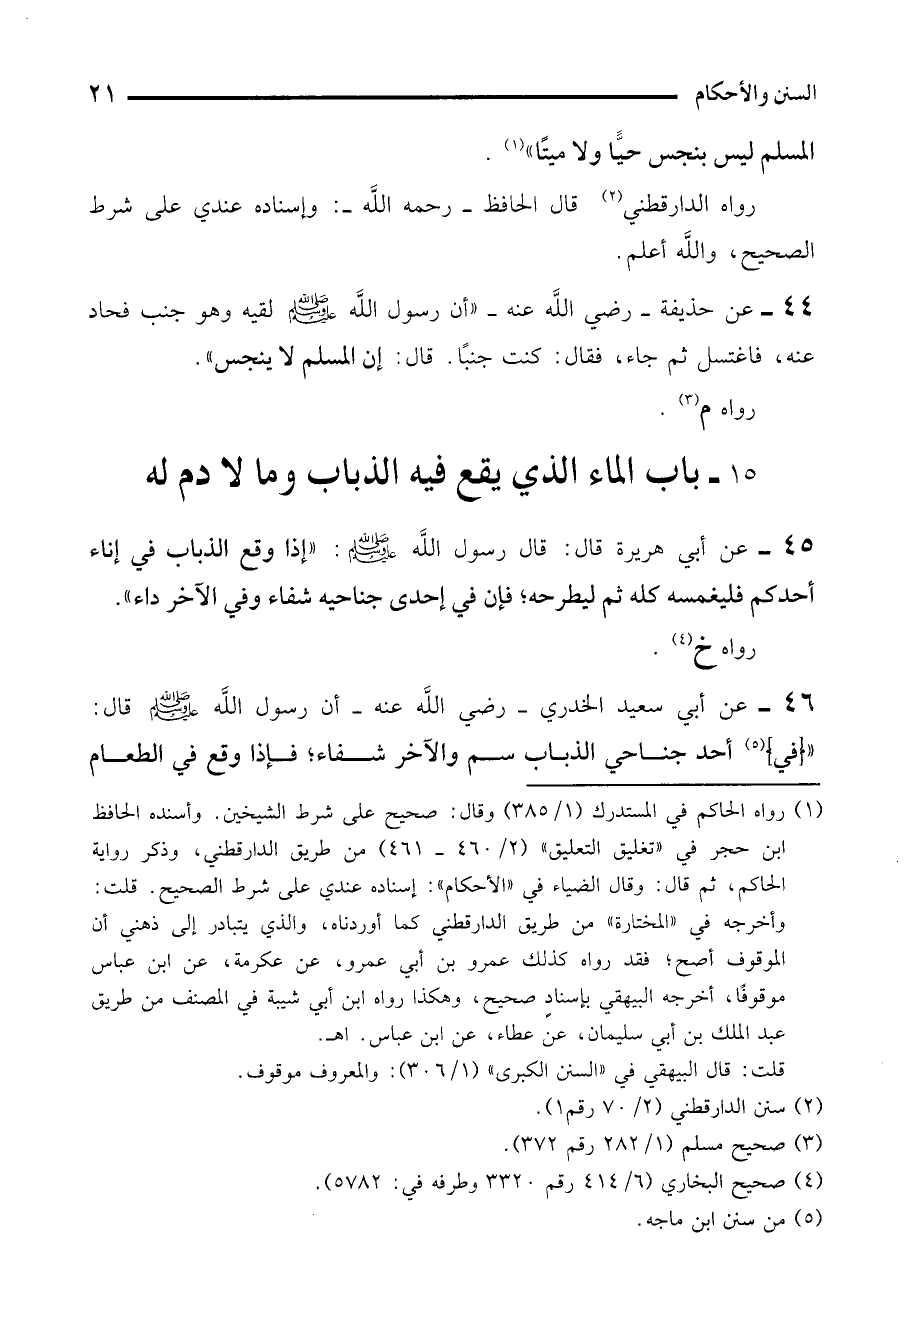 السنن والأحكام ٢١
المسلم ليس بنجس حيًّا ولا ميتًا»(١) .
رواه الدارقطني(٢) قال الحافظ ـ رحمه اللَّه ـ: وإسناده عندي على شرط
الصحيح، واللَّه أعلم.
٤٤ ـ عن حذيفة ـ رضي اللَّه عنه ـ «أن رسول اللَّه ﷺ لقيه وهو جنب فحاد
عنه، فاغتسل ثم جاء، فقال: كنت جنبًا. قال: إن المسلم لا ينجس».
رواه م(٣) .
١٥ ـ باب الماء الذي يقع فيه الذباب وما لا دم له
٤٥ ـ عن أبي هريرة قال: قال رسول اللَّه ﷺ: «إذا وقع الذباب في إناء
أحدكم فليغمسه كله ثم ليطرحه؛ فإن في إحدى جناحيه شفاء وفي الآخر داء».
رواه خ(٤) .
٤٦ ـ عن أبي سعيد الخدري ـ رضي اللَّه عنه ـ أن رسول اللَّه ﷺ قال:
«[في](٥) أحد جناحي الذباب سم والآخر شفاء؛ فإذا وقع في الطعام
(١) رواه الحاكم في المستدرك (١/ ٣٨٥) وقال: صحيح على شرط الشيخين. وأسنده الحافظ
ابن حجر في «تغليق التعليق» (٢/ ٤٦٠ ـ ٤٦١) من طريق الدارقطني، وذكر رواية
الحاكم، ثم قال: وقال الضياء في «الأحكام»: إسناده عندي على شرط الصحيح. قلت:
وأخرجه في «المختارة» من طريق الدارقطني كما أوردناه، والذي يتبادر إلى ذهني أن
الموقوف أصح؛ فقد رواه كذلك عمرو بن أبي عمرو، عن عكرمة، عن ابن عباس
موقوفًا، أخرجه البيهقي بإسنادٍ صحيح، وهكذا رواه ابن أبي شيبة في المصنف من طريق
عبد الملك بن أبي سليمان، عن عطاء، عن ابن عباس. اهـ.
قلت: قال البيهقي في «السنن الكبرى» (١/ ٣٠٦): والمعروف موقوف.
(٢) سنن الدارقطني (٢/ ٧٠ رقم١).
(٣) صحيح مسلم (١/ ٢٨٢ رقم ٣٧٢).
(٤) صحيح البخاري (٦/ ٤١٤ رقم ٣٣٢٠ وطرفه في: ٥٧٨٢).
(٥) من سنن ابن ماجه.